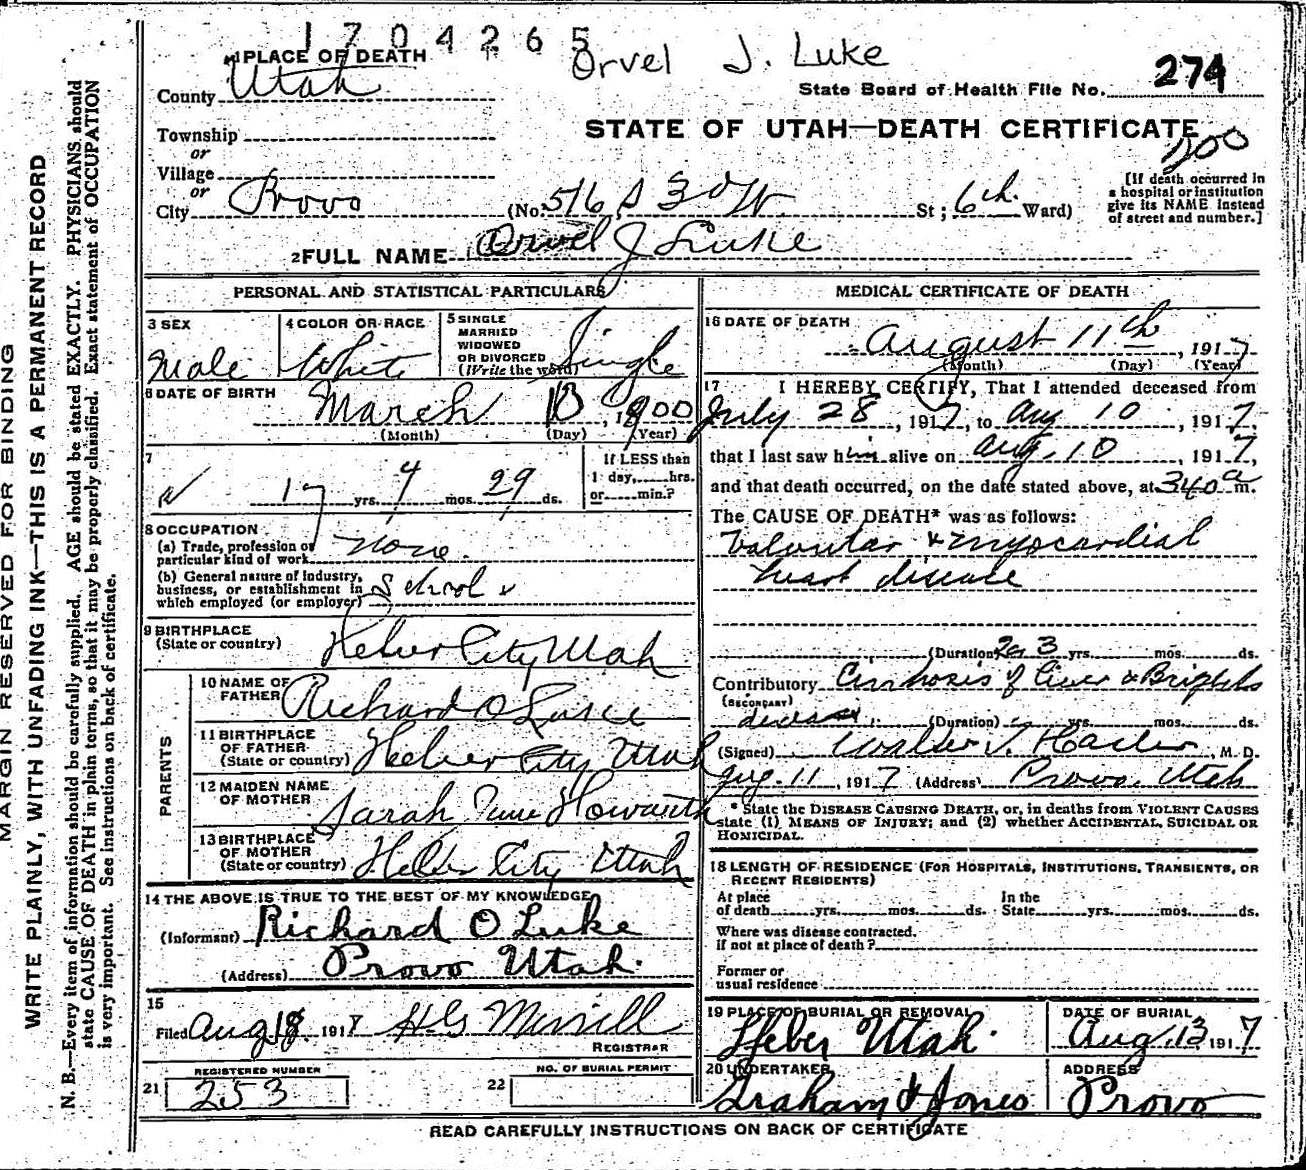 1704265
Orvel J. Luke
1 PLACE OF DEATH
County Utah
State Board of Health File No. 274
STATE OF UTAH—DEATH CERTIFICATE
200
Township
or
Village
or
City Provo (No. 516 S 3d W. St; 6th Ward)
[If death occurred in
a hospital or institution
give its NAME instead
of street and number.]
2 FULL NAME Orvel J Luke
PERSONAL AND STATISTICAL PARTICULARS
3 SEX
Male
4 COLOR OR RACE
White
5 SINGLE
MARRIED
WIDOWED
OR DIVORCED
(Write the word)
Single
6 DATE OF BIRTH
March 13, 1900
(Month) (Day) (Year)
7
17 yrs. 4 mos. 29 ds.
If LESS than
1 day, hrs.
or min.?
8 OCCUPATION
(a) Trade, profession or
particular kind of work none.
(b) General nature of industry,
business, or establishment in
which employed (or employer) School
9 BIRTHPLACE
(State or country) Heber City Utah
PARENTS
10 NAME OF
FATHER Richard O Luke
11 BIRTHPLACE
OF FATHER
(State or country) Heber City Utah
12 MAIDEN NAME
OF MOTHER Sarah Howarth
13 BIRTHPLACE
OF MOTHER
(State or country) Heber City Utah
14 THE ABOVE IS TRUE TO THE BEST OF MY KNOWLEDGE
(Informant) Richard O Luke
(Address) Provo Utah.
15
Filed Aug 18, 1917 H G Merrill
REGISTRAR
21 REGISTERED NUMBER
253
22 NO. OF BURIAL PERMIT
MEDICAL CERTIFICATE OF DEATH
16 DATE OF DEATH
August 11th, 1917
(Month) (Day) (Year)
17 I HEREBY CERTIFY, That I attended deceased from
July 28, 1917, to Aug 10, 1917,
that I last saw him alive on Aug. 10, 1917,
and that death occurred, on the date stated above, at 340 a m.
The CAUSE OF DEATH* was as follows:
Valvular & myocardial
heart disease
(Duration) 2 or 3 yrs. mos. ds.
Contributory Cirrhosis of liver & Brights
(SECONDARY)
disease. (Duration) yrs. mos. ds.
(Signed) Walter T. Hasler, M. D.
Aug. 11, 1917 (Address) Provo, Utah
* State the DISEASE CAUSING DEATH, or, in deaths from VIOLENT CAUSES
state (1) MEANS OF INJURY; and (2) whether ACCIDENTAL, SUICIDAL OR
HOMICIDAL.
18 LENGTH OF RESIDENCE (FOR HOSPITALS, INSTITUTIONS, TRANSIENTS, OR
RECENT RESIDENTS)
At place
of death yrs. mos. ds.
In the
State yrs. mos. ds.
Where was disease contracted.
if not at place of death?
Former or
usual residence
19 PLACE OF BURIAL OR REMOVAL
Heber Utah.
DATE OF BURIAL
Aug. 13 1917
20 UNDERTAKER
Graham & Jones
ADDRESS
Provo
READ CAREFULLY INSTRUCTIONS ON BACK OF CERTIFICATE
MARGIN RESERVED FOR BINDING
WRITE PLAINLY, WITH UNFADING INK—THIS IS A PERMANENT RECORD
N. B.—Every item of information should be carefully supplied. AGE should be stated EXACTLY. PHYSICIANS should
state CAUSE OF DEATH in plain terms, so that it may be properly classified. Exact statement of OCCUPATION
is very important. See instructions on back of certificate.